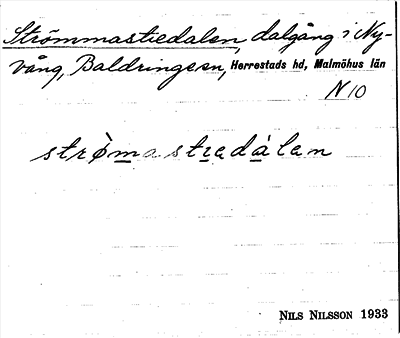 Strömmastiedalen, dalgång i Ny-
vång, Baldringe sn, Herrestads hd, Malmöhus län
N10
strø̀mastıedàlen
NILS NILSSON 1933